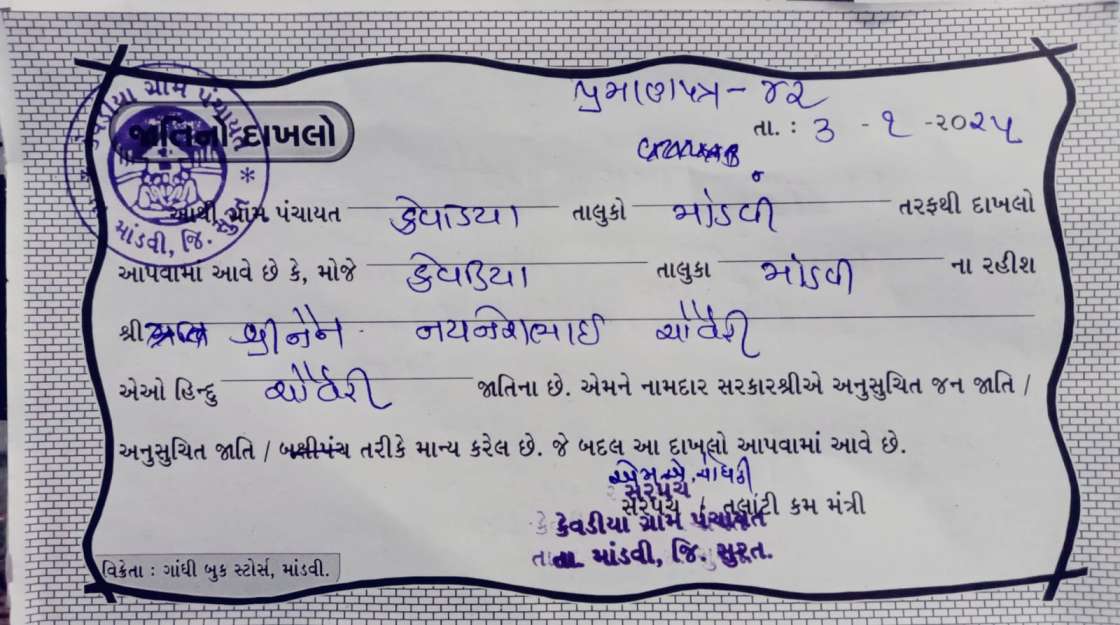 પ્રમાણપત્ર - ૪૨
કેવડીયા ગ્રામ પંચાયત * માંડવી, જિ. સુરત
જાતિનો દાખલો
તા. : ૩ - ૧ - ૨૦૨૫
આથી ગ્રામ પંચાયત કેવડિયા તાલુકો માંડવી તરફથી દાખલો
આપવામાં આવે છે કે, મોજે કેવડિયા તાલુકા માંડવી ના રહીશ
શ્રી શ્રીનૈન નયનેશભાઈ ચૌધરી
એઓ હિન્દુ ચૌધરી જાતિના છે. એમને નામદાર સરકારશ્રીએ અનુસુચિત જન જાતિ /
અનુસુચિત જાતિ / બક્ષીપંચ તરીકે માન્ય કરેલ છે. જે બદલ આ દાખલો આપવામાં આવે છે.
સરપંચ
સરપંચ / તલાટી કમ મંત્રી
કેવડીયા ગ્રામ પંચાયત
તા. માંડવી, જિ. સુરત.
વિક્રેતા : ગાંધી બુક સ્ટોર્સ, માંડવી.